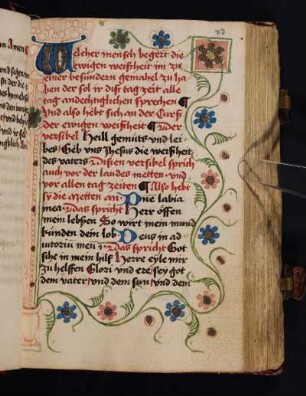 Welcher mensch begert die
ewigen weißheit im zu
einer besundern gemahel zu ha
ben der sol ir diß tag zeit alle
tag andechtiglichen sprechen ¶
Vnd also hebt sich an der Curß
der ewigen weißheit ¶ Der
versikel Heil gemüts vnd lei
bes Geb vns Jhesus die weißheit
des vaters Dißen versikel sprich
auch vor der laudes metten vnd
vor allen tag zeiten ¶ Also hebt
sy die Metten an Dne labia
mea das spricht Herr offen
mein lebßen So wirt mein mund
künden dein lob Deus in ad
iutoriu meu Das spricht Got
sihe in mein hilf Herre eyle mir
zu helffen Glori vnd ere sey got
dem vater vnd dem sun vnd dem